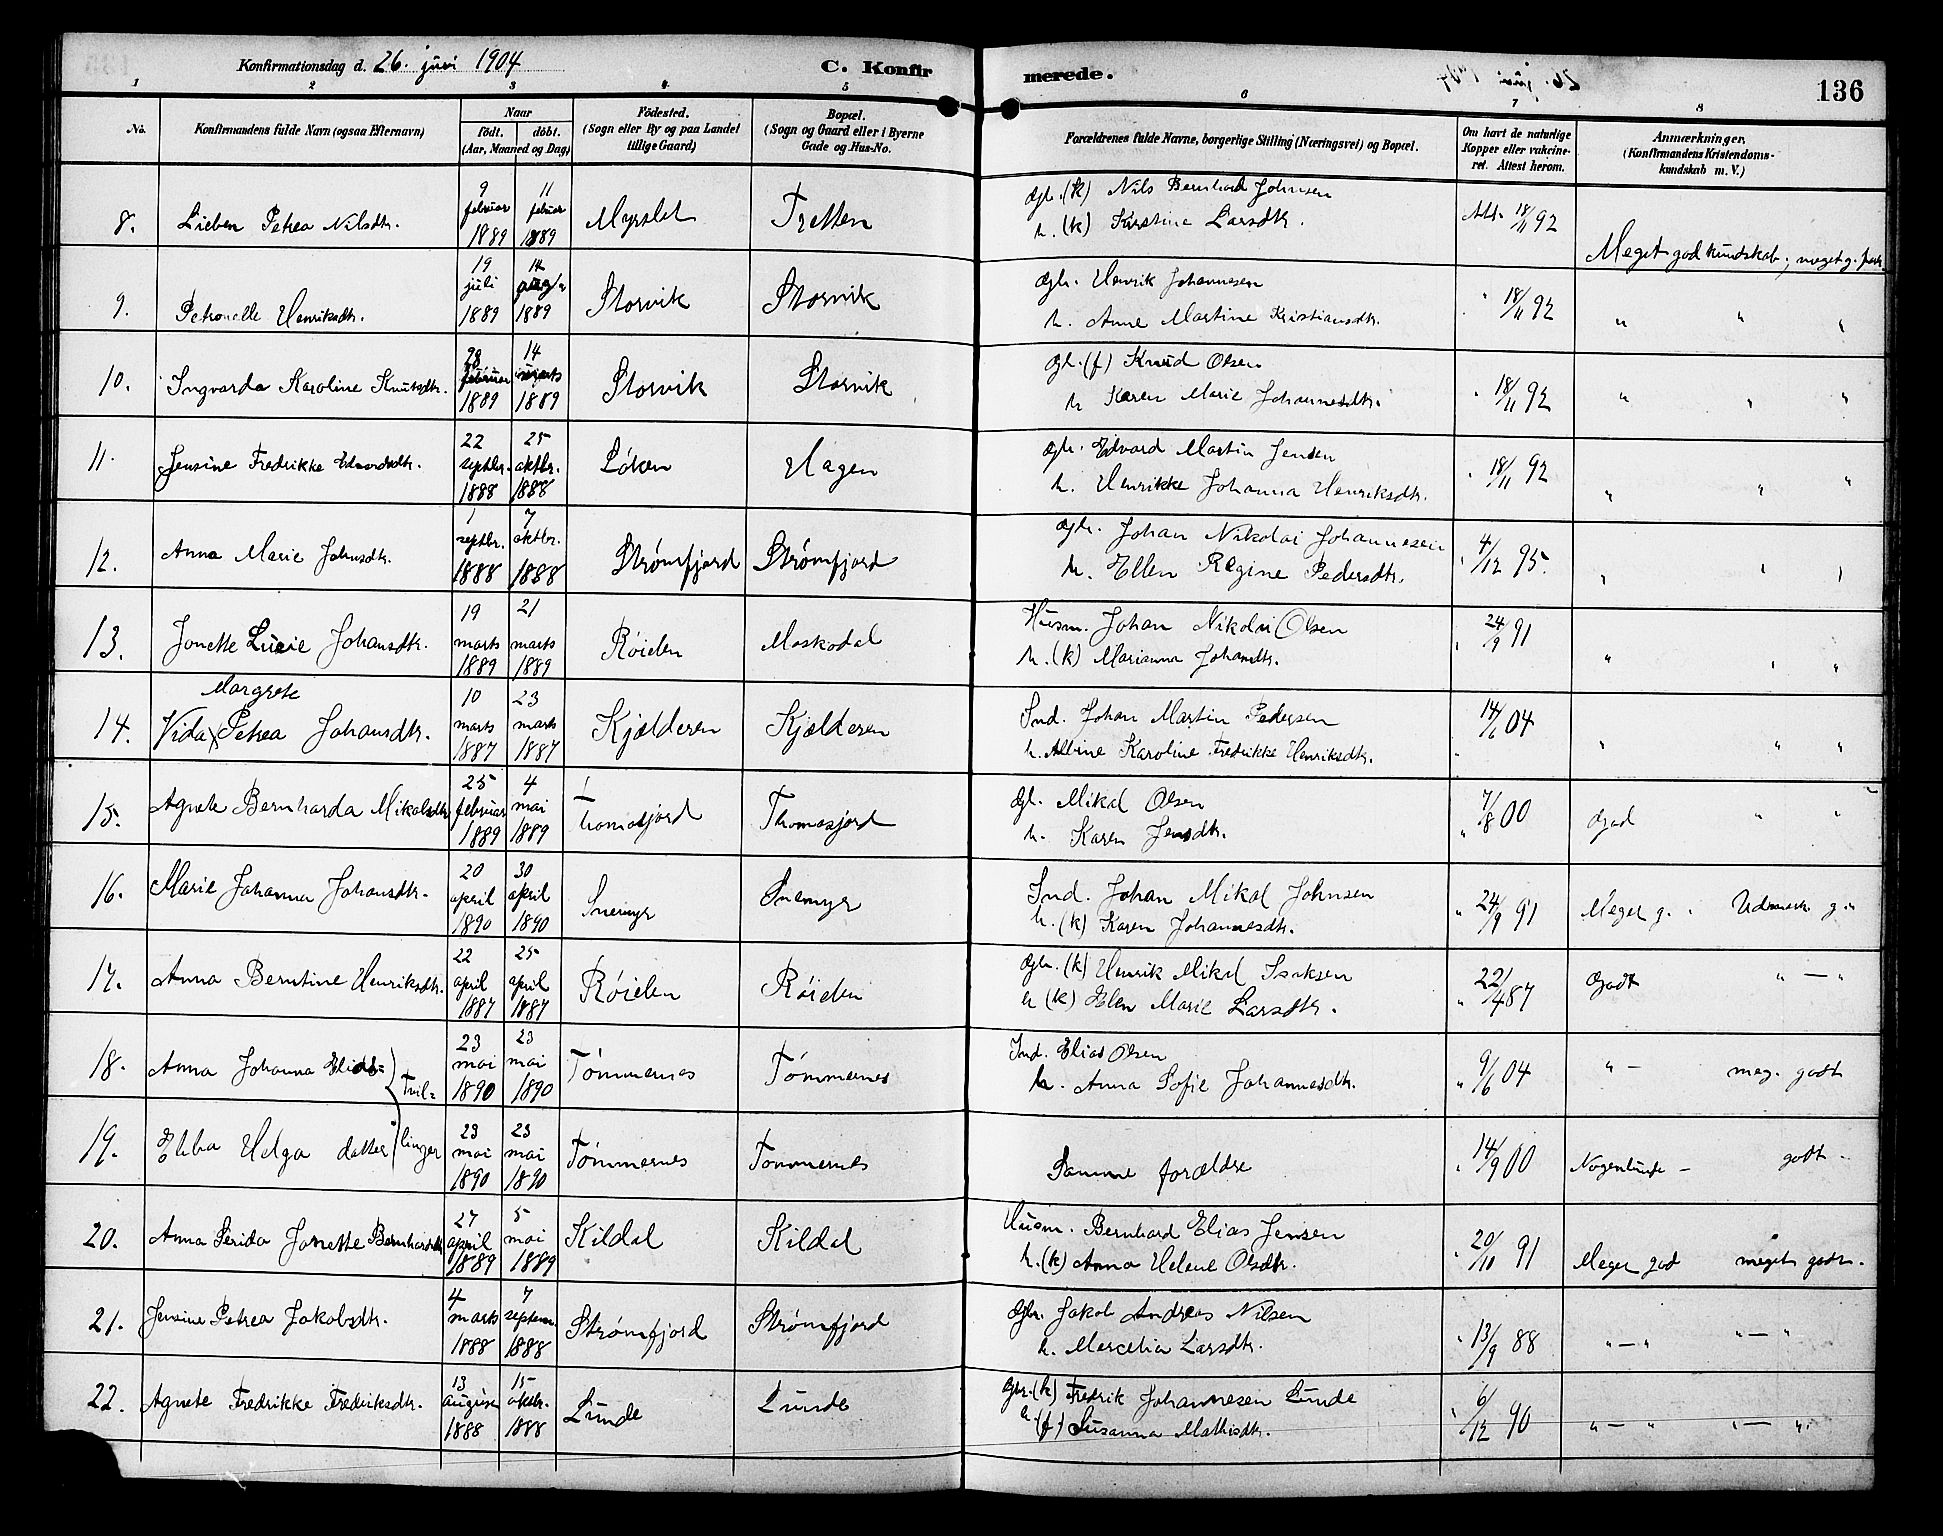 Konfirmationsdag d. 26. juni 1904
C. Konfirmerede.
136
1 2 3 4 5 6 7 8
No. Konfirmandens fulde Navn (ogsaa Efternavn) Naar født. døbt. (Aar, Maaned og Dag) Födested. (Sogn eller By og paa Landet tillige Gaard) Bopæl. (Sogn og Gaard eller i Byerne Gade og Hus-No. Forældrenes fulde Navne, borgerlige Stilling (Næringsvei) og Bopæl. Om havt de naturlige Kopper eller vakcineret. Attest herom. Anmærkninger. (Konfirmandens Kristendomskundskab m. V.)
8. Lieben Petrea Nilsdtr. 9 februar 1889 11 februar 1889 Myrslet Tretten gbr. (k) Nils Bernhard Johnsen
h. (k) Kirstine Larsdtr. Att. 18/11 92 Meget god kundskab; meget g.
9. Petronelle Henriksdtr. 19 juli 1889 1889 Storvik Storvik gbr. Henrik Johannesen
h. Anne Martine Kristiansdtr. " 18/11 92 " " "
10. Ingvarda Karoline Knutsdtr. 28 februar 1889 14 marts 1889 Storvik Storvik gbr. (f) Knud Olsen
h Karen Marie Johannesdtr. " 18/11 92 " " "
11. Jensine Fredrikke Edvardsdtr. 22 septbr. 1888 25 oktbr. 1888 Løken Hagen gbr. Edvard Martin Jensen
h. Henrikke Johanna Henriksdtr. " 18/11 92 " " "
12. Anna Marie Johnsdtr. 1 septbr. 1888 7 oktbr. 1888 Strømfjord Strømfjord gbr. Johan Nikolai Johannesen
h. Ellen Regine Pedersdtr. " 4/12 95. " " "
13. Jonette Lucie Johansdtr. 19 marts 1889 21 marts 1889 Røielen Maskodal Husm. Johan Nikolai Olsen
h. (k) Marianna Johansdtr. " 24/9 91 " " "
14. Vida Margrete Petrea Johansdtr. 10 marts 1887 23 marts 1887 Kjælderen Kjælderen Ind. Johan Martin Pedersen
h. Albine Karoline Fredrikke Henriksdtr. " 14/1 04 " " "
15. Agnete Bernharda Mikalsdtr. 25 februar 1889 4 mai 1889 Thomasjord Thomasjord gbr. Mikal Olsen
h. Karen Jensdtr. " 7/8 00 God " "
16. Marie Johanna Johansdtr. 20 april 1890 30 april 1890 Snemyr Snemyr Ind. Johan Mikal Johnsen
h. (k) Karen Johannesdtr. " 24/9 91 Meget g. Udmerk g.
17. Anna Berntine Henriksdtr. 22 april 1887 25 april 1887 Røielen Røielen gbr. (k) Henrik Mikal Isaksen
h (k) Elen Marie Larsdtr. " 22/4 87 Godt " — "
18. Anna Johanna Elias= Tvil= 23 mai 1890 23 mai 1890 Tømmernes Tømmernes Ind. Elias Olsen
h. Anna Sofie Johannesdtr. " 9/6 04 " — meg. godt
19. Ebba Helga datter linger 23 mai 1890 23 mai 1890 Tømmernes Tømmernes Samme forældre " 14/9 00 Nogenlunde — godt -
20. Anna Serida Jonette Bernhardsdtr. 27 april 1889 5 mai 1889 Kildal Kildal Husm. Bernhard Elias Jensen
h. (k) Anna Helene Olsdtr. " 20/10 91 Meget god meget godt.
21. Jensine Petrea Jakobsdtr. 4 marts 1888 7 septem. 1888 Strømfjord Strømfjord Gbr. Jakob Andreas Nilsen
h. Marcelia Larsdtr. " 13/9 88 " — " " — "
22. Agnete Fredrikke Fredriksdtr. 13 august 1888 15 oktbr. 1888 Lunde Lunde Gbr. (k) Fredrik Johannesen Lunde
h. (f) Susanna Mathisdtr. " 6/12 90 " — " " — "